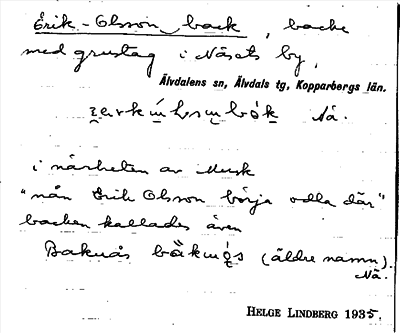 Erik-Olsson back, backe
med grustag i Näsets by,
Älvdalens sn, Älvdals tg, Kopparbergs län.
Nä.
i närheten av Musk
"nån Erik Olsson börja odla där"
backen kallades även
Baknäs (äldre namn).
Nä.
HELGE LINDBERG 1935.